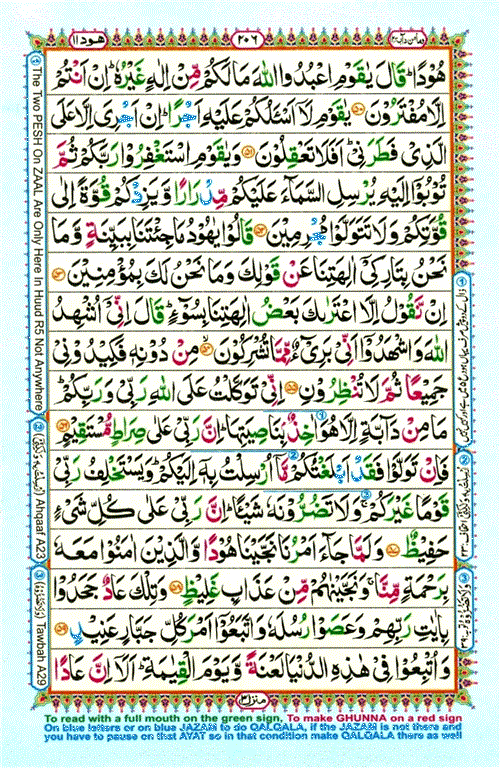 هود ١١
٢٠٦
هُوْدًا ؕ قَالَ يٰقَوْمِ اعْبُدُوا اللّٰهَ مَا لَكُمْ مِّنْ اِلٰهٍ غَيْرُهٗ ؕ اِنْ اَنْتُمْ
اِلَّا مُفْتَرُوْنَ ۝۵۰ يٰقَوْمِ لَاۤ اَسْـَٔلُكُمْ عَلَيْهِ اَجْرًا ؕ اِنْ اَجْرِيَ اِلَّا عَلَى
الَّذِيْ فَطَرَنِيْ ؕ اَفَلَا تَعْقِلُوْنَ ۝۵۱ وَ يٰقَوْمِ اسْتَغْفِرُوْا رَبَّكُمْ ثُمَّ
تُوْبُوْۤا اِلَيْهِ يُرْسِلِ السَّمَآءَ عَلَيْكُمْ مِّدْرَارًا وَّ يَزِدْكُمْ قُوَّةً اِلٰى
قُوَّتِكُمْ وَ لَا تَتَوَلَّوْا مُجْرِمِيْنَ ۝۵۲ قَالُوْا يٰهُوْدُ مَا جِئْتَنَا بِبَيِّنَةٍ وَّ مَا
نَحْنُ بِتَارِكِيْۤ اٰلِهَتِنَا عَنْ قَوْلِكَ وَ مَا نَحْنُ لَكَ بِمُؤْمِنِيْنَ ۝۵۳
اِنْ نَّقُوْلُ اِلَّا اعْتَرٰىكَ بَعْضُ اٰلِهَتِنَا بِسُوْٓءٍ ؕ قَالَ اِنِّيْۤ اُشْهِدُ
اللّٰهَ وَ اشْهَدُوْۤا اَنِّيْ بَرِيْٓءٌ مِّمَّا تُشْرِكُوْنَ ۝۵۴ مِنْ دُوْنِهٖ فَكِيْدُوْنِيْ
جَمِيْعًا ثُمَّ لَا تُنْظِرُوْنِ ۝۵۵ اِنِّيْ تَوَكَّلْتُ عَلَى اللّٰهِ رَبِّيْ وَ رَبِّكُمْ ؕ
مَا مِنْ دَآبَّةٍ اِلَّا هُوَ اٰخِذٌۢ بِنَاصِيَتِهَا ؕ اِنَّ رَبِّيْ عَلٰى صِرَاطٍ مُّسْتَقِيْمٍ ۝۵۶
فَاِنْ تَوَلَّوْا فَقَدْ اَبْلَغْتُكُمْ مَّاۤ اُرْسِلْتُ بِهٖۤ اِلَيْكُمْ ؕ وَ يَسْتَخْلِفُ رَبِّيْ
قَوْمًا غَيْرَكُمْ ۚ وَ لَا تَضُرُّوْنَهٗ شَيْـًٔا ؕ اِنَّ رَبِّيْ عَلٰى كُلِّ شَيْءٍ
حَفِيْظٌ ۝۵۷ وَ لَمَّا جَآءَ اَمْرُنَا نَجَّيْنَا هُوْدًا وَّ الَّذِيْنَ اٰمَنُوْا مَعَهٗ
بِرَحْمَةٍ مِّنَّا ۚ وَ نَجَّيْنٰهُمْ مِّنْ عَذَابٍ غَلِيْظٍ ۝۵۸ وَ تِلْكَ عَادٌ ۙ جَحَدُوْا
بِاٰيٰتِ رَبِّهِمْ وَ عَصَوْا رُسُلَهٗ وَ اتَّبَعُوْۤا اَمْرَ كُلِّ جَبَّارٍ عَنِيْدٍ ۝۵۹
وَ اُتْبِعُوْا فِيْ هٰذِهِ الدُّنْيَا لَعْنَةً وَّ يَوْمَ الْقِيٰمَةِ ؕ اَلَاۤ اِنَّ عَادًا
منزل ٣
The Two PESH On ZAAL Are Only Here In Huud R5 Not Anywhere
Ahqaaf A23
Tawbah A29
To read with a full mouth on the green sign, To make GHUNNA on a red sign
On blue letters or on blue JAZAM to do QALQALA, if the JAZAM is not there and
you have to pause on that AYAT so in that condition make QALQALA there as well